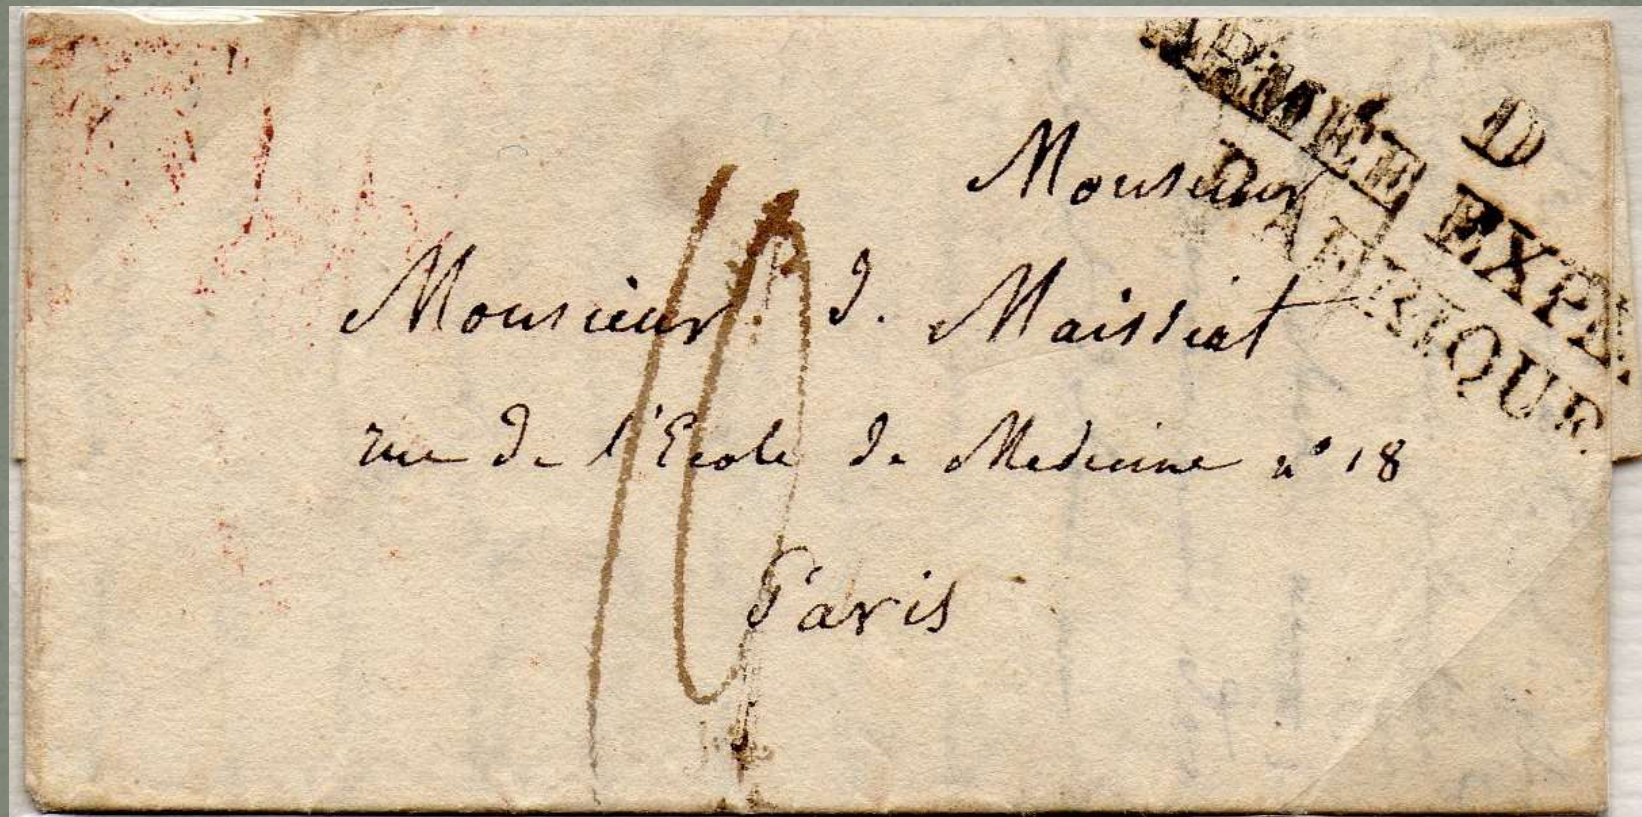 D
ARMÉE EXPE.
D'AFRIQUE.
Monsieur
Monsieur J. Maissiat
rue de l'Ecole de Medecine n° 18
Paris
10